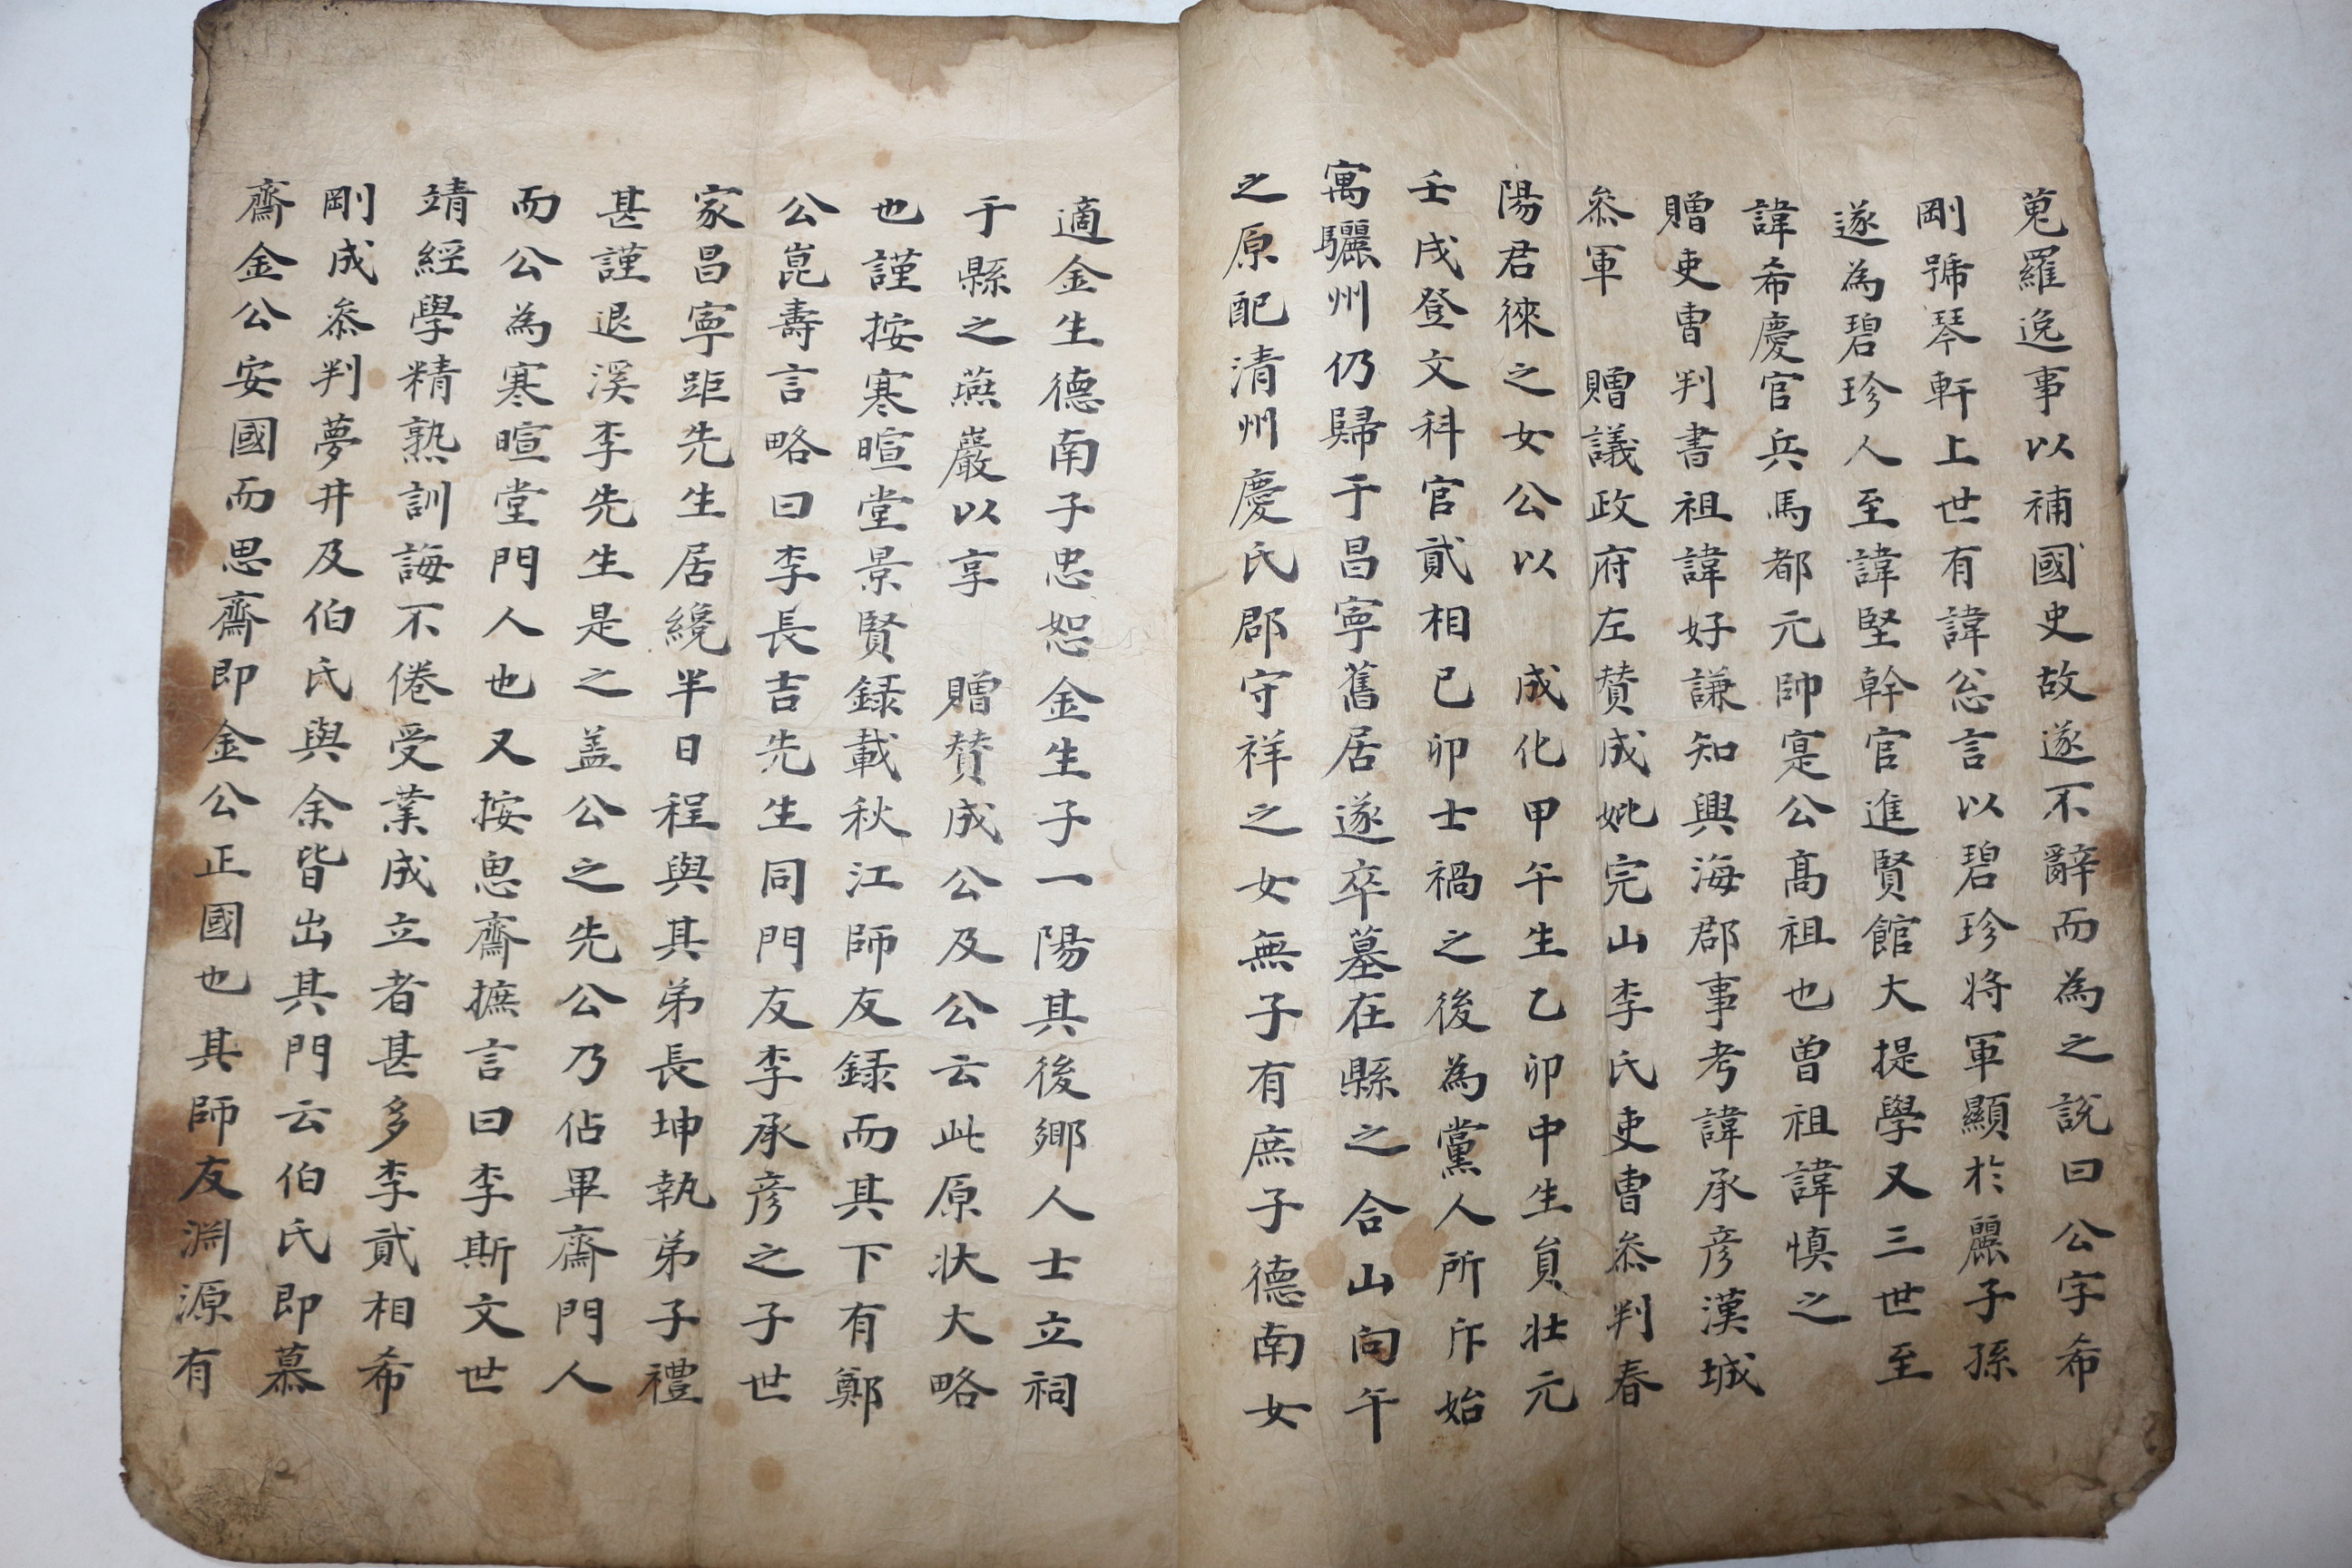 蒐羅逸事以補國史故遂不辭而為之說曰公字希
剛號琴軒上世有諱忩言以碧珍將軍顯於麗子孫
遂為碧珍人至諱堅幹官進賢館大提學又三世至
諱希慶官兵馬都元帥寔公高祖也曾祖諱愼之
贈吏曹判書祖諱好謙知興海郡事考諱承彦漢城
叅軍 贈議政府左賛成妣完山李氏吏曹叅判春
陽君徠之女公以 成化甲午生乙卯中生員壯元
壬戌登文科官貳相己卯士禍之後為黨人所斥始
寓驪州仍歸于昌寧舊居遂卒墓在縣之合山向午
之原配清州慶氏郡守祥之女無子有庶子德南女
適金生德南子忠恕金生子一陽其後鄉人士立祠
于縣之燕巖以享 贈賛成公及公云此原狀大略
也謹按寒暄堂景賢録載秋江師友録而其下有鄭
公崑壽言略曰李長吉先生同門友李承彦之子世
家昌寧距先生居纔半日程與其弟長坤執弟子禮
甚謹退溪李先生是之盖公之先公乃佔畢齋門人
而公為寒暄堂門人也又按思齋摭言曰李斯文世
靖經學精熟訓誨不倦受業成立者甚多李貳相希
剛成叅判夢井及伯氏與余皆出其門云伯氏即慕
齋金公安國而思齋即金公正國也其師友淵源有